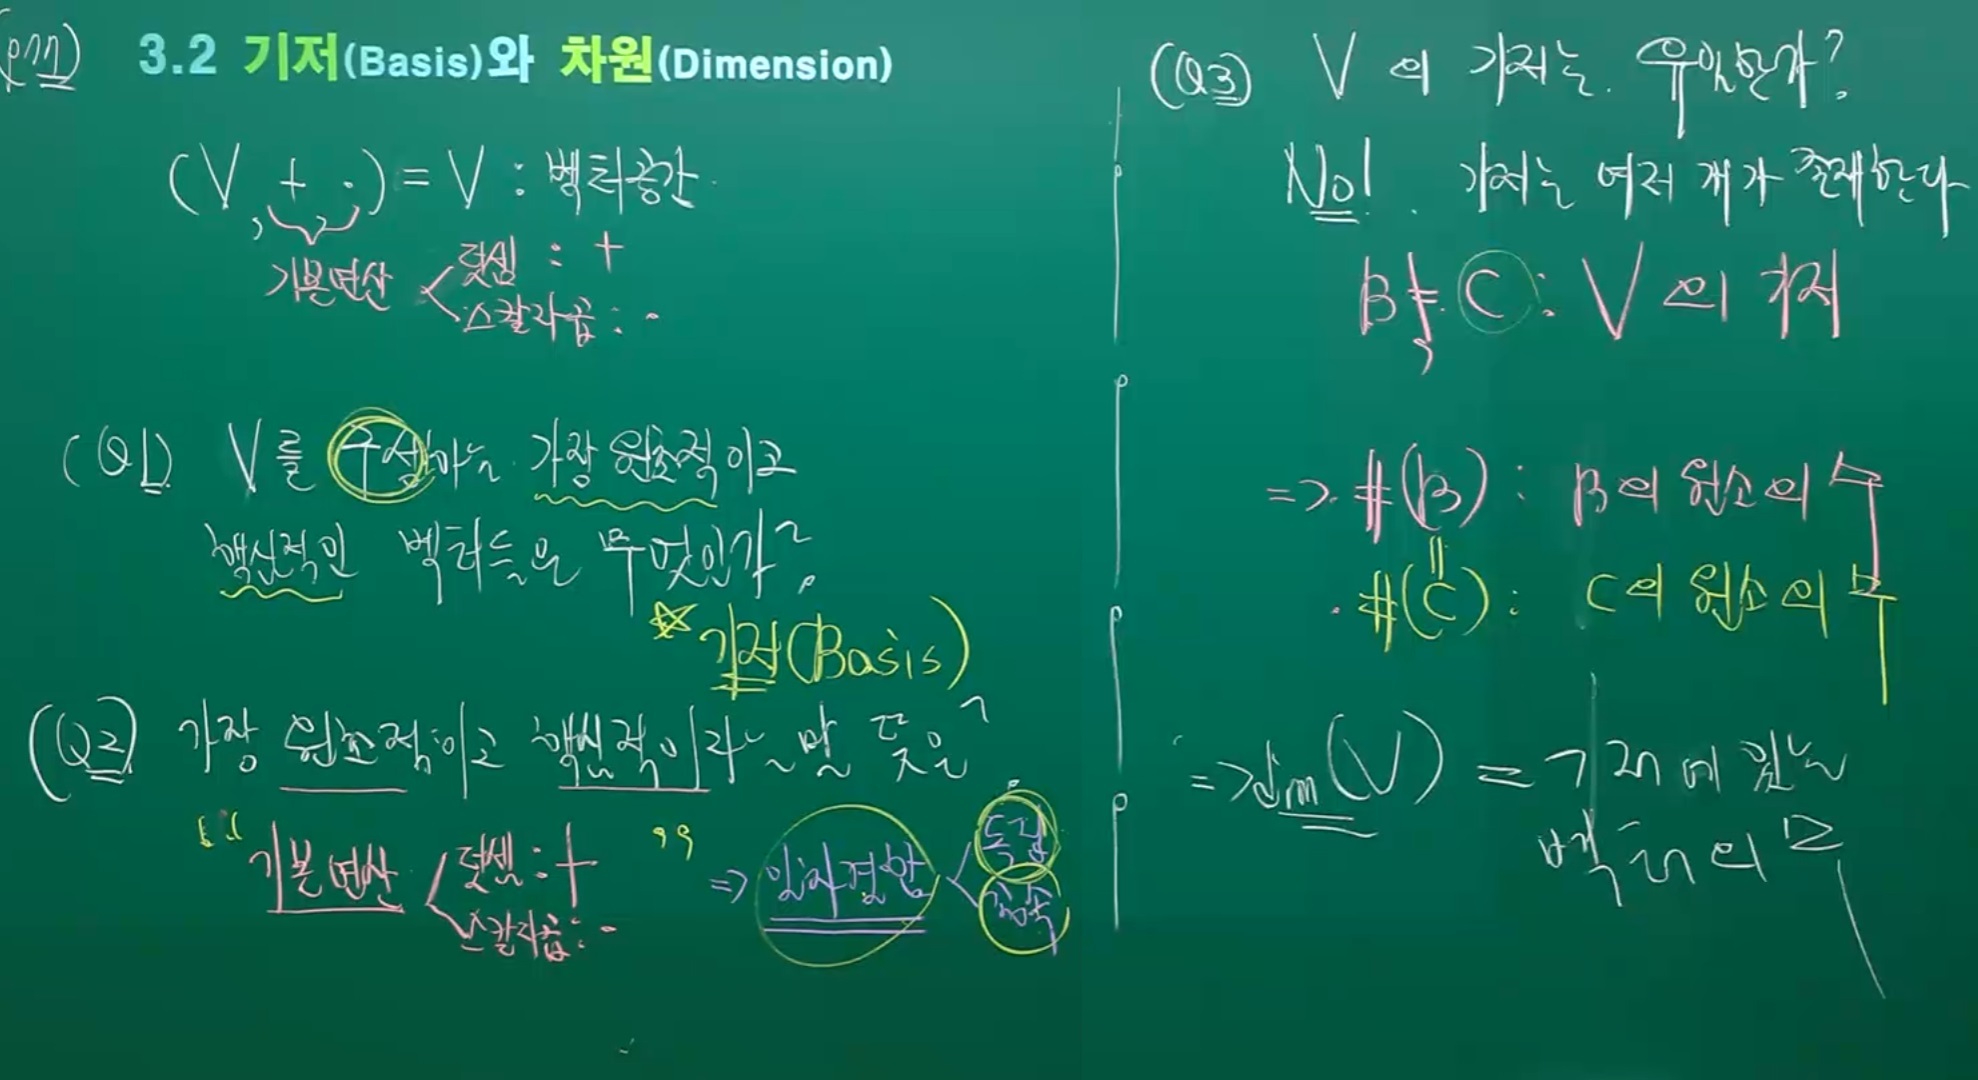 (p77)
3.2 기저(Basis)와 차원(Dimension)
(V, +, ·) = V : 벡터공간
기본연산 < 덧셈 : +
스칼라곱 : ·
(Q1) V를 구성하는 가장 원초적이고
핵심적인 벡터들은 무엇인가?
☆ 기저(Basis)
(Q2) 가장 원초적이고 핵심적이라는 말 뜻은?
" 기본연산 < 덧셈 : + " => 일차결합 < 독립
스칼라곱 : · 종속
(Q3) V의 기저는 유일한가?
No! 기저는 여러 개가 존재한다
B ≠ C : V의 기저
=> #(B) : B의 원소의 수
=
#(C) : C의 원소의 수
=> dim(V) = 기저에 있는
벡터의 수